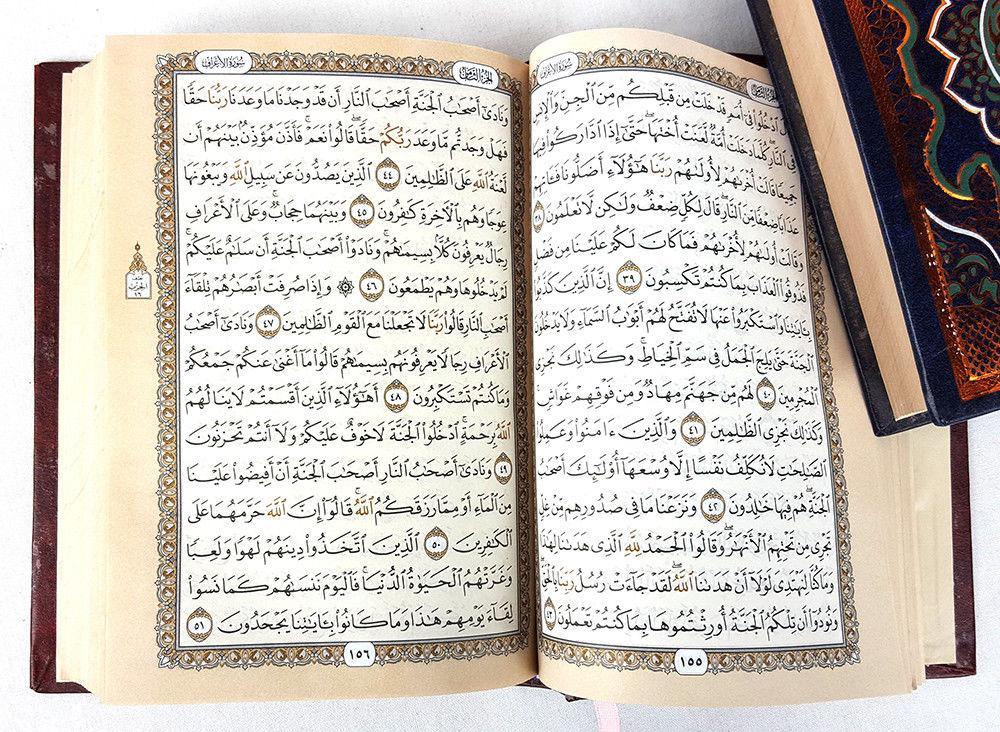 سورة الأعراف
الجزء الثامن
قَالَ ٱدۡخُلُواْ فِيٓ أُمَمٖ قَدۡ خَلَتۡ مِن قَبۡلِكُم مِّنَ ٱلۡجِنِّ وَٱلۡإِنسِ
فِي ٱلنَّارِۖ كُلَّمَا دَخَلَتۡ أُمَّةٞ لَّعَنَتۡ أُخۡتَهَاۖ حَتَّىٰٓ إِذَا ٱدَّارَكُواْ فِيهَا
جَمِيعٗا قَالَتۡ أُخۡرَىٰهُمۡ لِأُولَىٰهُمۡ رَبَّنَا هَٰٓؤُلَآءِ أَضَلُّونَا فَـَٔاتِهِمۡ
عَذَابٗا ضِعۡفٗا مِّنَ ٱلنَّارِۖ قَالَ لِكُلّٖ ضِعۡفٞ وَلَٰكِن لَّا تَعۡلَمُونَ ٣٨
وَقَالَتۡ أُولَىٰهُمۡ لِأُخۡرَىٰهُمۡ فَمَا كَانَ لَكُمۡ عَلَيۡنَا مِن فَضۡلٖ
فَذُوقُواْ ٱلۡعَذَابَ بِمَا كُنتُمۡ تَكۡسِبُونَ ٣٩ إِنَّ ٱلَّذِينَ كَذَّبُواْ
بِـَٔايَٰتِنَا وَٱسۡتَكۡبَرُواْ عَنۡهَا لَا تُفَتَّحُ لَهُمۡ أَبۡوَٰبُ ٱلسَّمَآءِ وَلَا يَدۡخُلُونَ
ٱلۡجَنَّةَ حَتَّىٰ يَلِجَ ٱلۡجَمَلُ فِي سَمِّ ٱلۡخِيَاطِۚ وَكَذَٰلِكَ نَجۡزِي
ٱلۡمُجۡرِمِينَ ٤٠ لَهُم مِّن جَهَنَّمَ مِهَادٞ وَمِن فَوۡقِهِمۡ غَوَاشٖۚ
وَكَذَٰلِكَ نَجۡزِي ٱلظَّٰلِمِينَ ٤١ وَٱلَّذِينَ ءَامَنُواْ وَعَمِلُواْ
ٱلصَّٰلِحَٰتِ لَا نُكَلِّفُ نَفۡسًا إِلَّا وُسۡعَهَآ أُوْلَٰٓئِكَ أَصۡحَٰبُ
ٱلۡجَنَّةِۖ هُمۡ فِيهَا خَٰلِدُونَ ٤٢ وَنَزَعۡنَا مَا فِي صُدُورِهِم مِّنۡ غِلّٖ
تَجۡرِي مِن تَحۡتِهِمُ ٱلۡأَنۡهَٰرُۖ وَقَالُواْ ٱلۡحَمۡدُ لِلَّهِ ٱلَّذِي هَدَىٰنَا لِهَٰذَا
وَمَا كُنَّا لِنَهۡتَدِيَ لَوۡلَآ أَنۡ هَدَىٰنَا ٱللَّهُۖ لَقَدۡ جَآءَتۡ رُسُلُ رَبِّنَا بِٱلۡحَقِّۖ
وَنُودُوٓاْ أَن تِلۡكُمُ ٱلۡجَنَّةُ أُورِثۡتُمُوهَا بِمَا كُنتُمۡ تَعۡمَلُونَ ٤٣
١٥٥
سورة الأعراف
الجزء الثامن
وَنَادَىٰٓ أَصۡحَٰبُ ٱلۡجَنَّةِ أَصۡحَٰبَ ٱلنَّارِ أَن قَدۡ وَجَدۡنَا مَا وَعَدَنَا رَبُّنَا حَقّٗا
فَهَلۡ وَجَدتُّم مَّا وَعَدَ رَبُّكُمۡ حَقّٗاۖ قَالُواْ نَعَمۡۚ فَأَذَّنَ مُؤَذِّنُۢ بَيۡنَهُمۡ أَن
لَّعۡنَةُ ٱللَّهِ عَلَى ٱلظَّٰلِمِينَ ٤٤ ٱلَّذِينَ يَصُدُّونَ عَن سَبِيلِ ٱللَّهِ وَيَبۡغُونَهَا
عِوَجٗا وَهُم بِٱلۡأٓخِرَةِ كَٰفِرُونَ ٤٥ وَبَيۡنَهُمَا حِجَابٞۚ وَعَلَى ٱلۡأَعۡرَافِ
رِجَالٞ يَعۡرِفُونَ كُلَّۢا بِسِيمَىٰهُمۡۚ وَنَادَوۡاْ أَصۡحَٰبَ ٱلۡجَنَّةِ أَن سَلَٰمٌ عَلَيۡكُمۡۚ
لَمۡ يَدۡخُلُوهَا وَهُمۡ يَطۡمَعُونَ ٤٦ ۞ وَإِذَا صُرِفَتۡ أَبۡصَٰرُهُمۡ تِلۡقَآءَ
أَصۡحَٰبِ ٱلنَّارِ قَالُواْ رَبَّنَا لَا تَجۡعَلۡنَا مَعَ ٱلۡقَوۡمِ ٱلظَّٰلِمِينَ ٤٧ وَنَادَىٰٓ أَصۡحَٰبُ
ٱلۡأَعۡرَافِ رِجَالٗا يَعۡرِفُونَهُم بِسِيمَىٰهُمۡ قَالُواْ مَآ أَغۡنَىٰ عَنكُمۡ جَمۡعُكُمۡ
وَمَا كُنتُمۡ تَسۡتَكۡبِرُونَ ٤٨ أَهَٰٓؤُلَآءِ ٱلَّذِينَ أَقۡسَمۡتُمۡ لَا يَنَالُهُمُ
ٱللَّهُ بِرَحۡمَةٍۚ ٱدۡخُلُواْ ٱلۡجَنَّةَ لَا خَوۡفٌ عَلَيۡكُمۡ وَلَآ أَنتُمۡ تَحۡزَنُونَ
٤٩ وَنَادَىٰٓ أَصۡحَٰبُ ٱلنَّارِ أَصۡحَٰبَ ٱلۡجَنَّةِ أَنۡ أَفِيضُواْ عَلَيۡنَا
مِنَ ٱلۡمَآءِ أَوۡ مِمَّا رَزَقَكُمُ ٱللَّهُۚ قَالُوٓاْ إِنَّ ٱللَّهَ حَرَّمَهُمَا عَلَى
ٱلۡكَٰفِرِينَ ٥٠ ٱلَّذِينَ ٱتَّخَذُواْ دِينَهُمۡ لَهۡوٗا وَلَعِبٗا
وَغَرَّتۡهُمُ ٱلۡحَيَوٰةُ ٱلدُّنۡيَاۚ فَٱلۡيَوۡمَ نَنسَىٰهُمۡ كَمَا نَسُواْ
لِقَآءَ يَوۡمِهِمۡ هَٰذَا وَمَا كَانُواْ بِـَٔايَٰتِنَا يَجۡحَدُونَ ٥١
نصف
الحزب
١٦
١٥٦